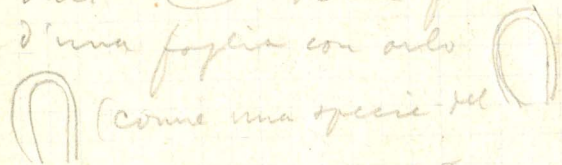 d'una foglia con orlo
(come una specie del